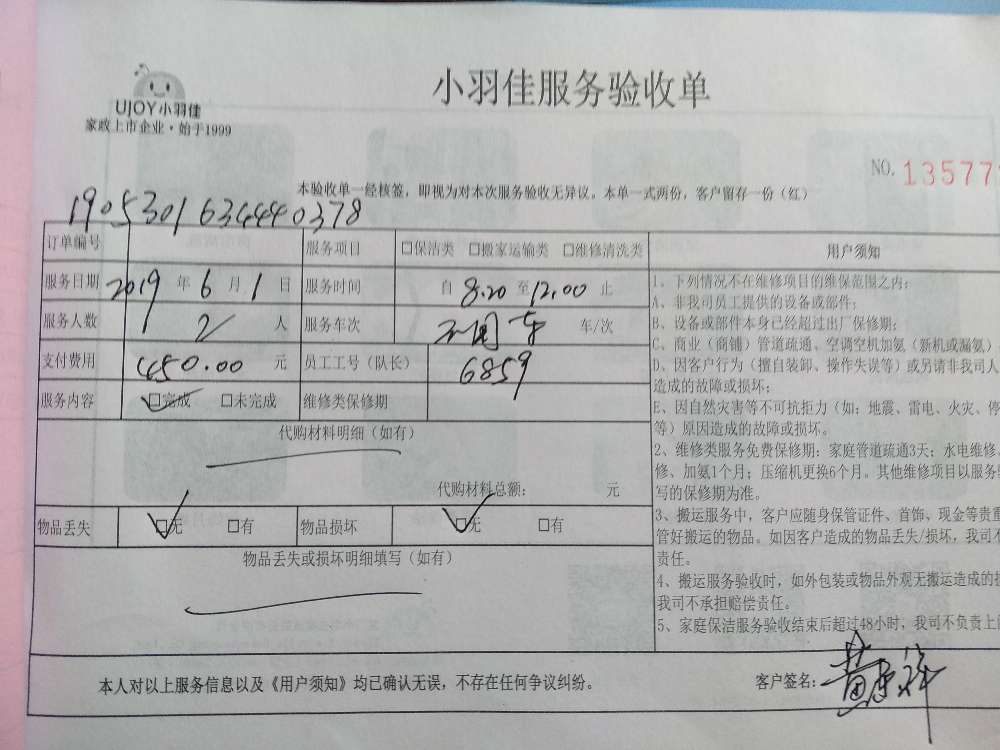 小羽佳服务验收单
UJOY小羽佳
家政上市企业·始于1999
NO. 13577
本验收单一经核签，即视为对本次服务验收无异议。本单一式两份，客户留存一份（红）
190530163444 0378
订单编号 服务项目 □保洁类 □搬家运输类 □维修清洗类 用户须知
服务日期 2019 年 6 月 1 日 服务时间 自 8.20 至 12.00 止
服务人数 2 人 服务车次 不用车 车/次
支付费用 450.00 元 员工工号（队长） 6859
服务内容 ☑完成 □未完成 维修类保修期
代购材料明细（如有）
代购材料总额： 元
物品丢失 ☑无 □有 物品损坏 ☑无 □有
物品丢失或损坏明细填写（如有）
1、下列情况不在维修项目的维保范围之内：
A、非我司员工提供的设备或部件；
B、设备或部件本身已经超过出厂保修期；
C、商业（商铺）管道疏通、空调空机加氨（新机或漏氨）
D、因客户行为（擅自装卸、操作失误等）或另请非我司人
造成的故障或损坏；
E、因自然灾害等不可抗拒力（如：地震、雷电、火灾、停
等）原因造成的故障或损坏。
2、维修类服务免费保修期：家庭管道疏通3天；水电维修、
修、加氨1个月；压缩机更换6个月。其他维修项目以服务
写的保修期为准。
3、搬运服务中，客户应随身保管证件、首饰、现金等贵重
管好搬运的物品。如因客户造成的物品丢失/损坏，我司不
责任。
4、搬运服务验收时，如外包装或物品外观无搬运造成的
我司不承担赔偿责任。
5、家庭保洁服务验收结束后超过48小时，我司不负责上
本人对以上服务信息以及《用户须知》均已确认无误，不存在任何争议纠纷。 客户签名：